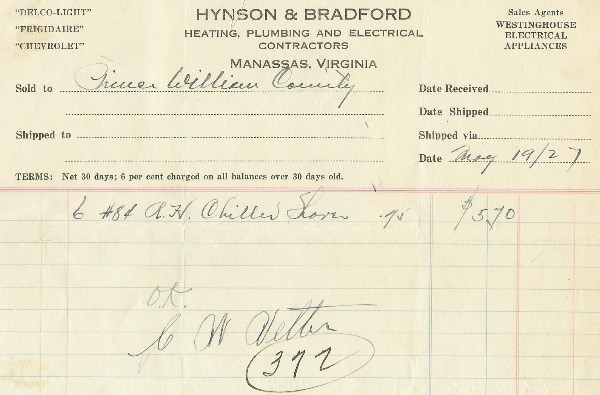 "DELCO-LIGHT"
"FRIGIDAIRE"
"CHEVROLET"
HYNSON & BRADFORD
HEATING, PLUMBING AND ELECTRICAL
CONTRACTORS
MANASSAS, VIRGINIA
Sales Agents
WESTINGHOUSE
ELECTRICAL
APPLIANCES
Sold to Prince William County
Shipped to
Date Received
Date Shipped
Shipped via
Date May 19/27
TERMS: Net 30 days; 6 per cent charged on all balances over 30 days old.
6 #84 R.H. .95 $5.70
O.K.
C W
377